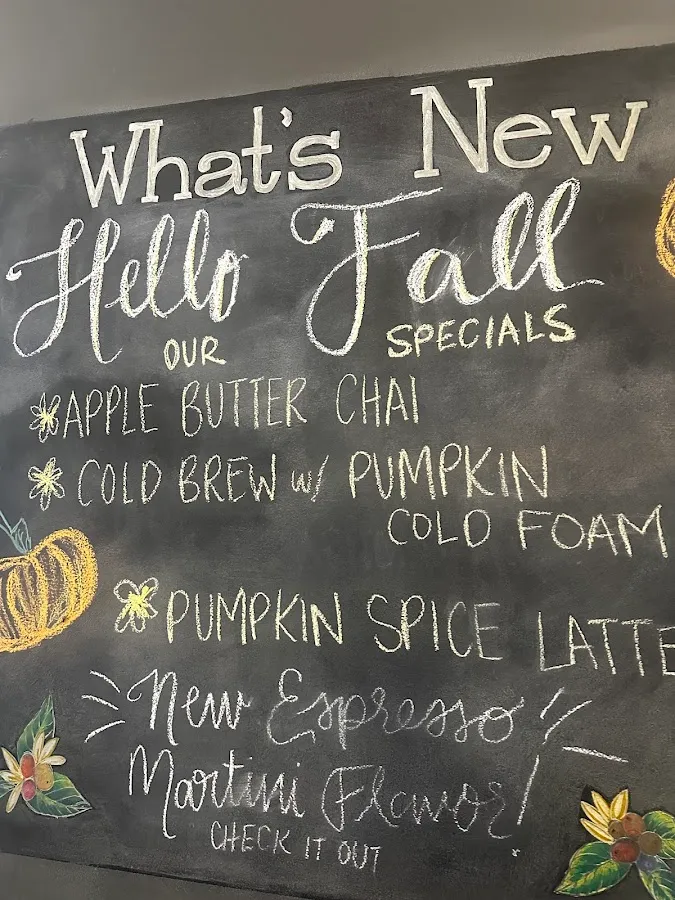 What's New
Hello Fall
OUR SPECIALS
APPLE BUTTER CHAI
COLD BREW w/ PUMPKIN
COLD FOAM
PUMPKIN SPICE LATTE
New Espresso
Martini Flavor!
CHECK IT OUT